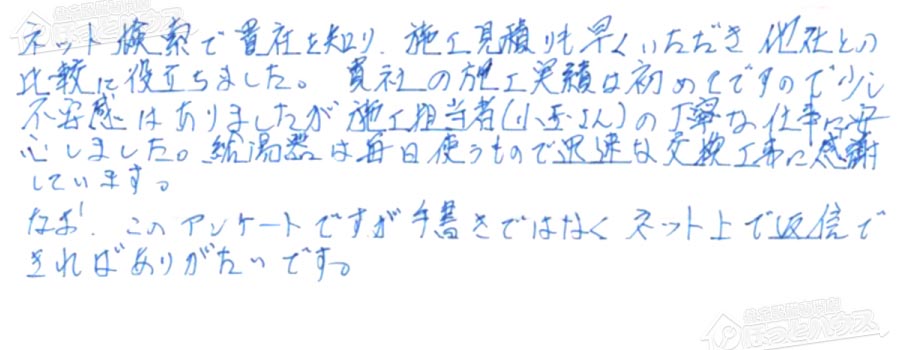 ネット検索で貴社を知り、施工見積りも早くいただき他社との
比較に役立ちました。貴社の施工実績は初めてですので少し
不安感はありましたが施工担当者(小玉さん)の丁寧な仕事に安
心しました。給湯器は毎日使うもので迅速な交換工事に感謝
しています。
なお、このアンケートですが手書きではなくネット上で返信で
きればありがたいです。
ほっとハウス
ほっとハウス